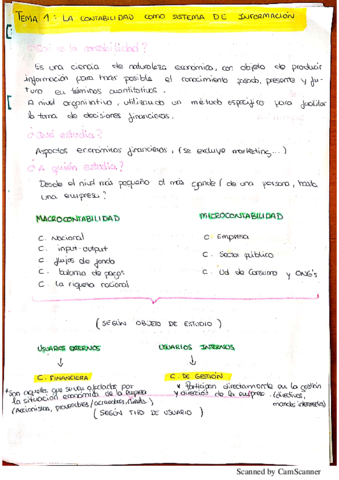 TEMA 1: LA CONTABILIDAD COMO SISTEMA DE INFORMACIÓN
¿Qué es la contabilidad?
Es una ciencia de naturaleza económica, con objeto de producir
información para hacer posible el conocimiento pasado, presente y fu-
turo en términos cuantitativos.
A nivel organizativo, utilizando un método específico para facilitar
la toma de decisiones financieras.
¿Qué estudia?
Aspectos económicos financieros, (se excluye marketing...)
¿A quién estudia?
Desde el nivel más pequeño al más grande (de una persona, hasta
una empresa?
MACROCONTABILIDAD
MICROCONTABILIDAD
C. Nacional
C. Empresa
C. input-output
C. flujos de fondo
C. Sector público
C. balanza de pagos
C. Ud de Consumo y ONG's
C. La riqueza nacional
(SEGÚN OBJETO DE ESTUDIO)
USUARIOS EXTERNOS
USUARIOS INTERNOS
C. FINANCIERA
C. DE GESTIÓN
*Son aquellos que se ven afectados por
la situación económica de la empresa
(Accionistas, proveedores/acreedores,
* Participan directamente en la gestión
y dirección de la empresa. (directivos,
mandos intermedios)
(SEGÚN TIPO DE USUARIO)
Scanned by CamScanner